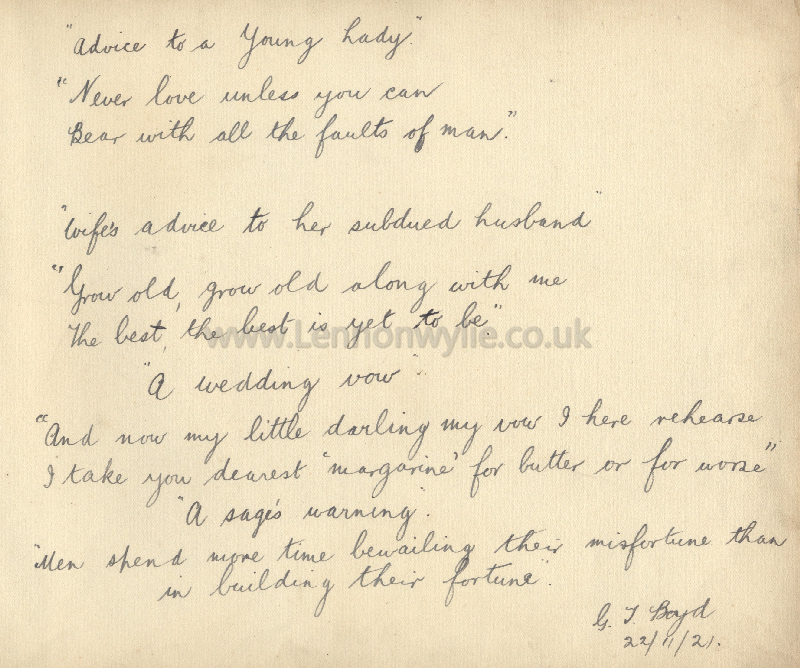 "Advice to a Young Lady."
"Never love unless you can
Bear with all the faults of man."
"Wife's advice to her subdued husband"
"Grow old, grow old along with me
The best, the best is yet to be"
www.Lennonwylie.co.uk
"A wedding vow"
"And now my little darling my vow I here rehearse
I take you dearest "margarine" for butter or for worse"
"A sage's warning".
"Men spend more time bewailing their misfortune than
in building their fortune".
G. T. Boyd
22/11/21.